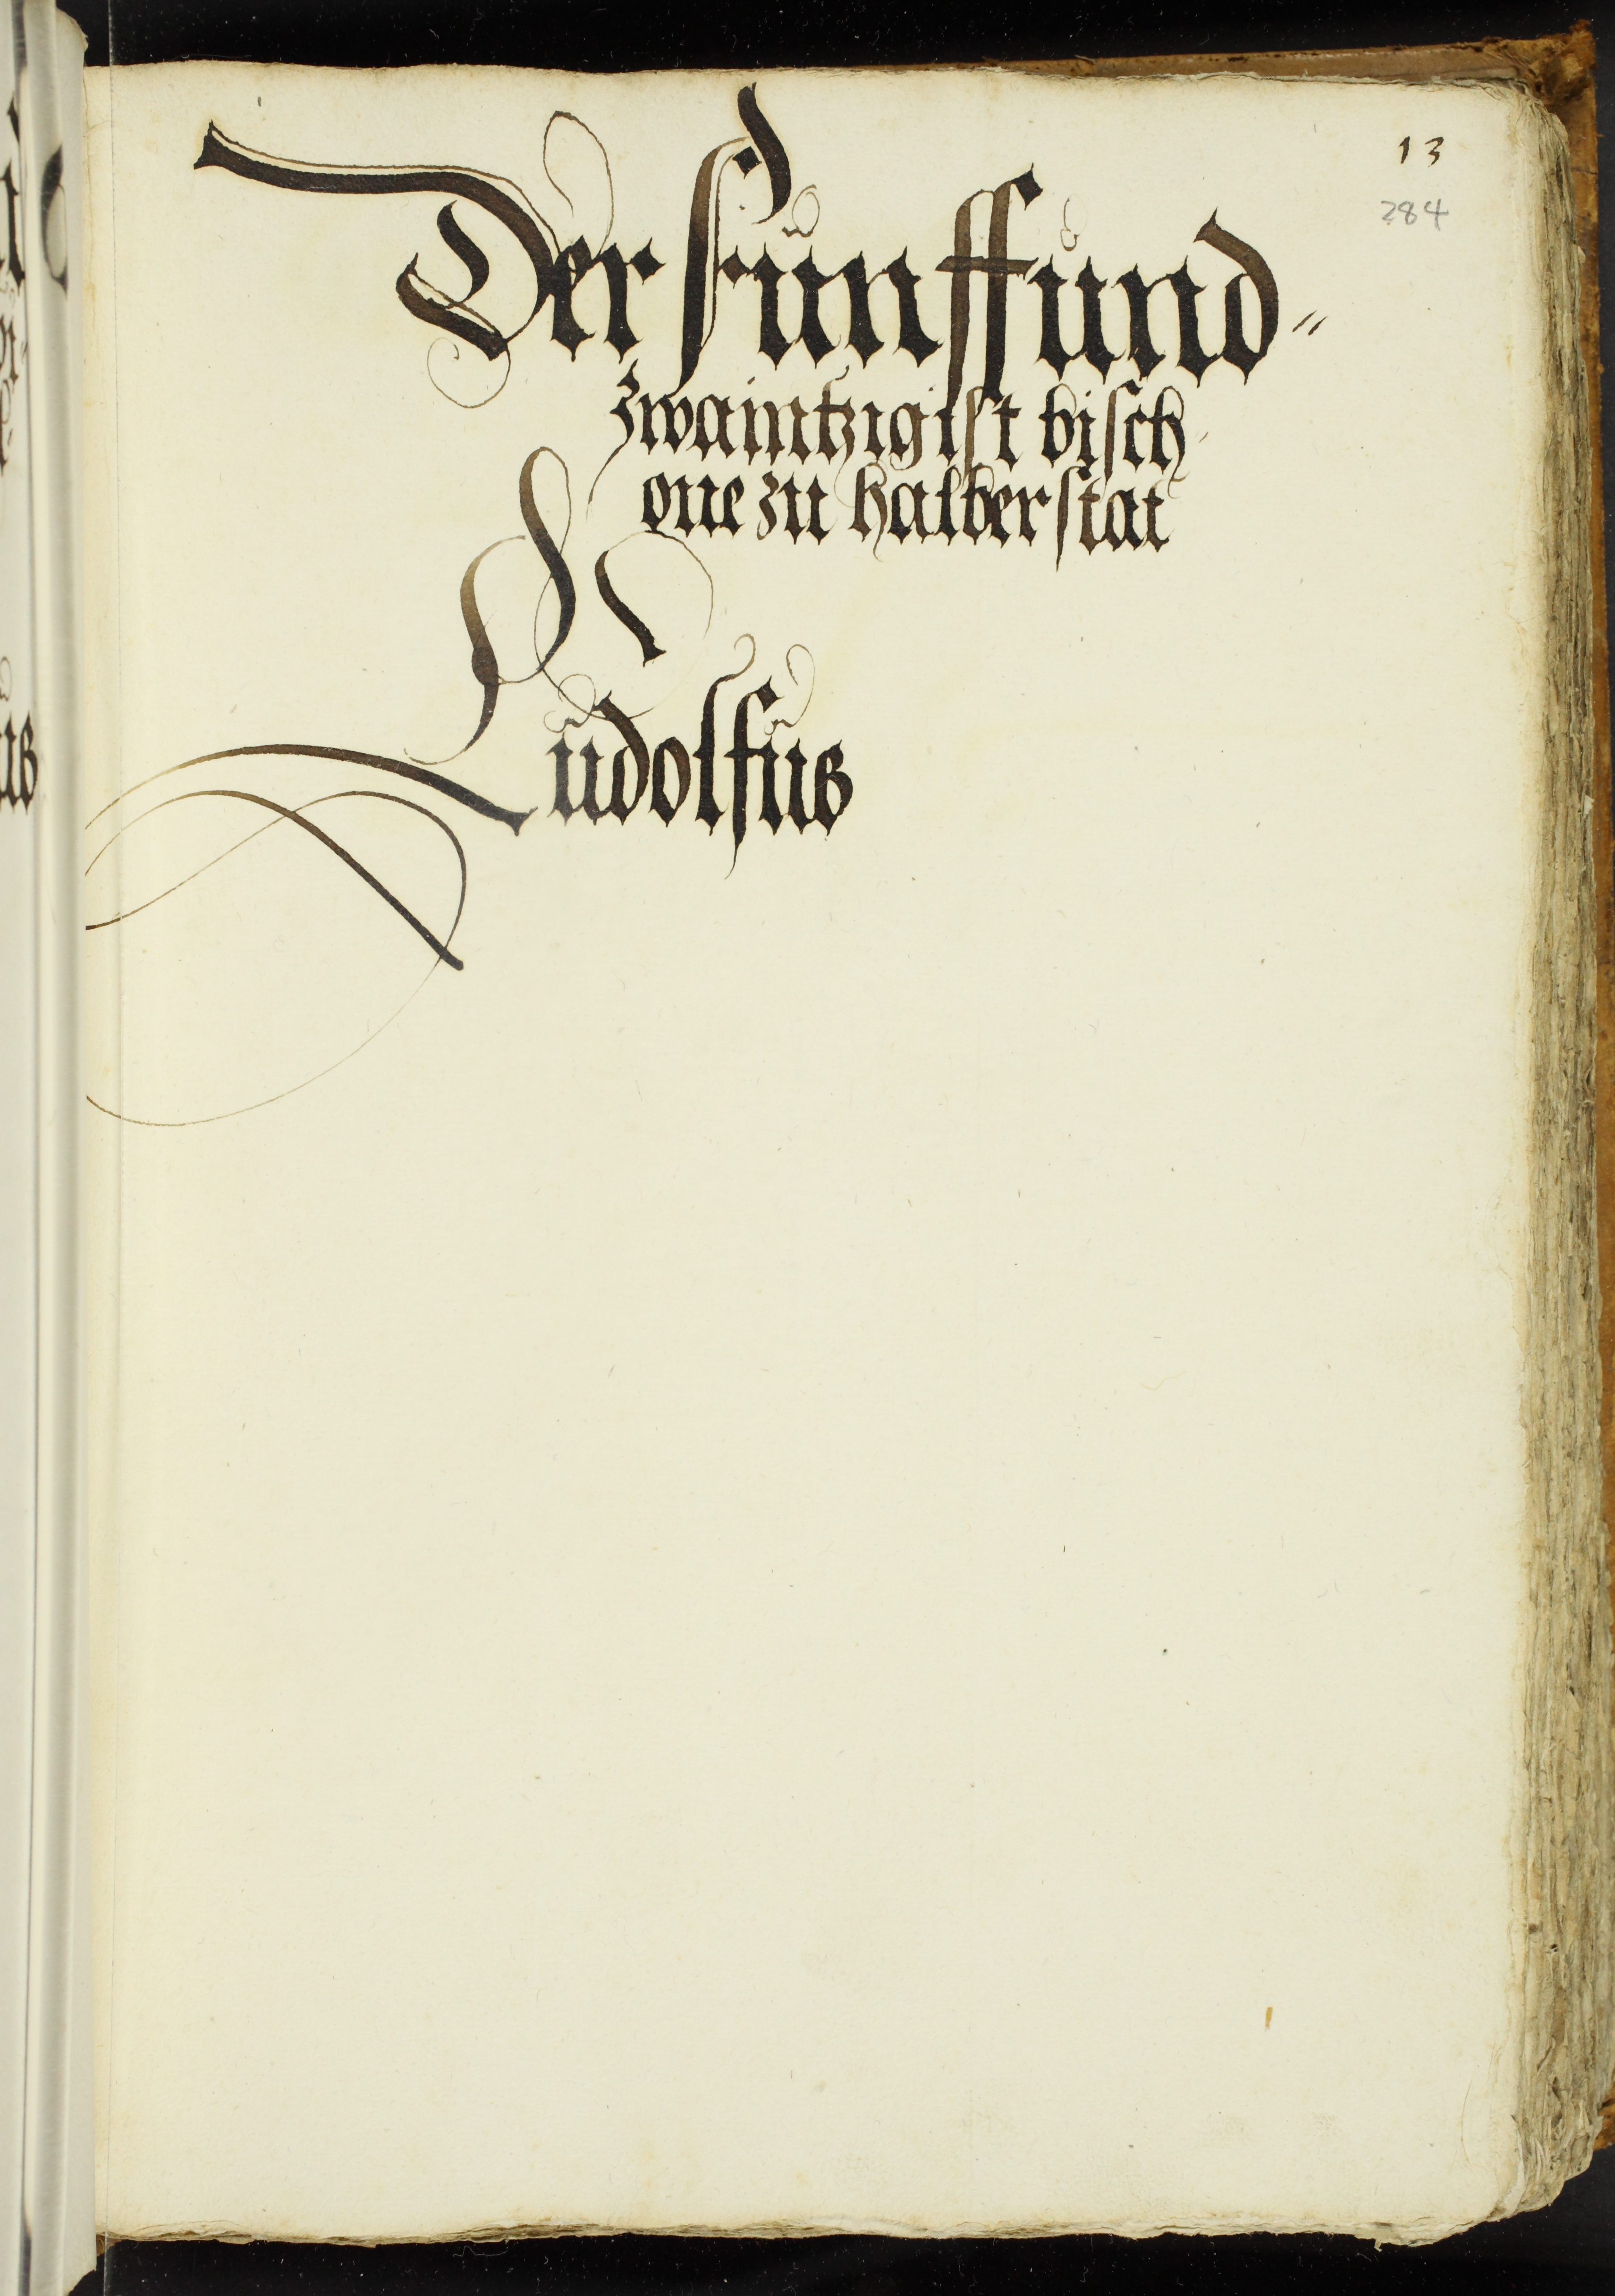 13
284
Der funffund-
zwaintzigist bisch-
oue zu halberstat
Ludolfus